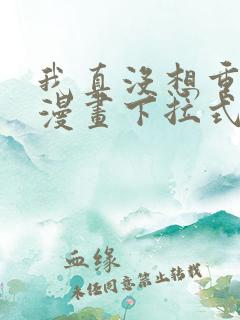 我真没想重
漫畫下拉式
血缘
未经同意禁止转载